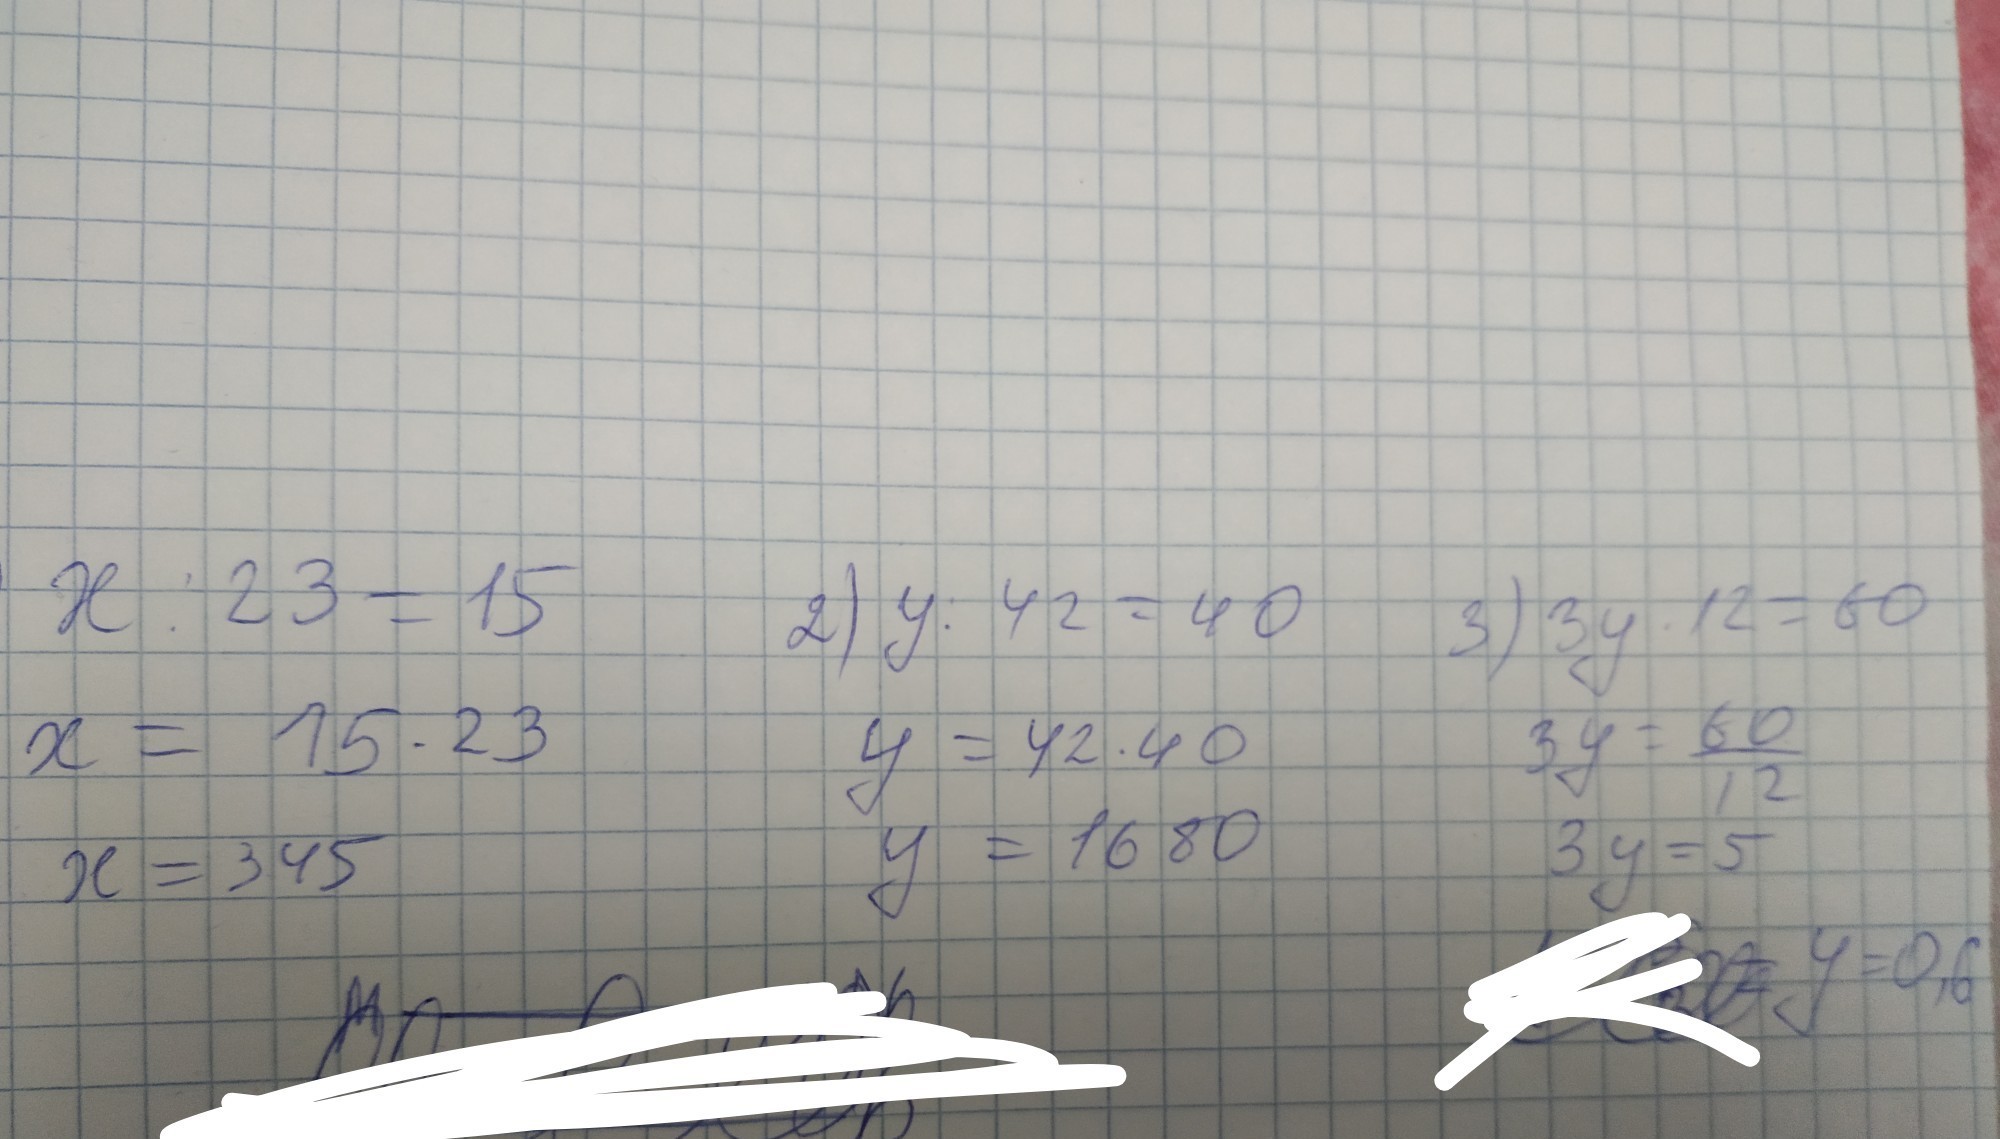 x : 23 = 15
x = 15 · 23
x = 345
2) y : 42 = 40
y = 42 · 40
y = 1680
3) 3y · 12 = 60
3y = 60/12
3y = 5
y = 0,6